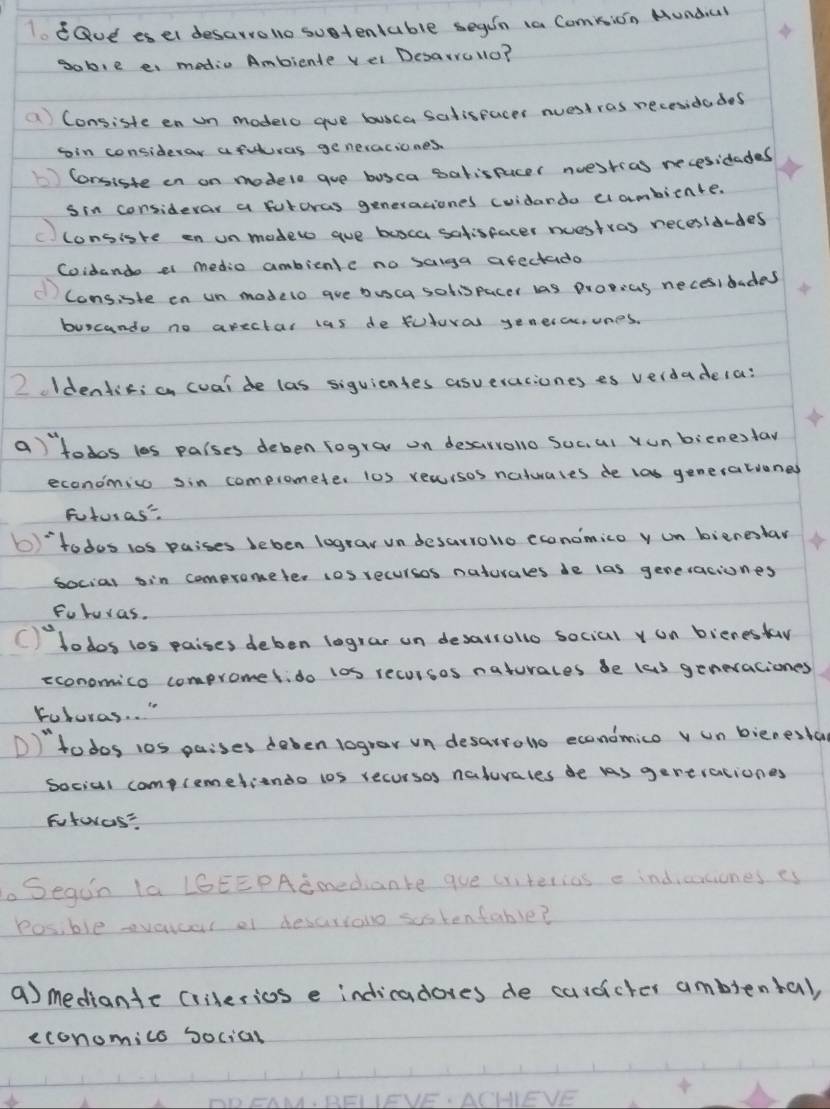 1. ¿Qué es el desarrollo sustentable según la Comisión Mundial
sobre el medio Ambiente y el Desarrollo?
a) Consiste en un modelo que busca satisfacer nuestras necesidades
sin considerar a futuras generaciones.
b) Consiste en un modelo que busca satisfacer nuestras necesidades
sin considerar a futuras generaciones cuidando el ambiente.
c) consiste en un modelo que busca satisfacer nuestras necesidades
Cuidando el medio ambiente no salga afectado
d) Consiste en un modelo que busca satisfacer las propias necesidades
buscando no afectar las de futuras generaciones.
2. Identifica cuál de las siguientes aseveraciones es verdadera:
a) "todos los países deben lograr un desarrollo Social y un bienestar
económico sin comprometer los recursos naturales de las generaciones
Futuras".
b) "todos los paises deben lograr un desarrollo económico y un bienestar
social sin comprometer los recursos naturales de las generaciones
Futuras.
C) "todos los paises deben lograr un desarrollo social y un bienestar
economico comprometido los recursos naturales de las generaciones
Futuras..."
D) "todos los paises deben lograr un desarrollo económico y un bienestar
Social comprometiendo los recursos naturales de las generaciones
Futuras".
. Según la LGEEPA ¿mediante que criterios e indicaciones es
Posible evaluar el desarrollo sustentable?
a) mediante criterios e indicadores de carácter ambiental,
economico Social
DREAM · BELIEVE · ACHIEVE